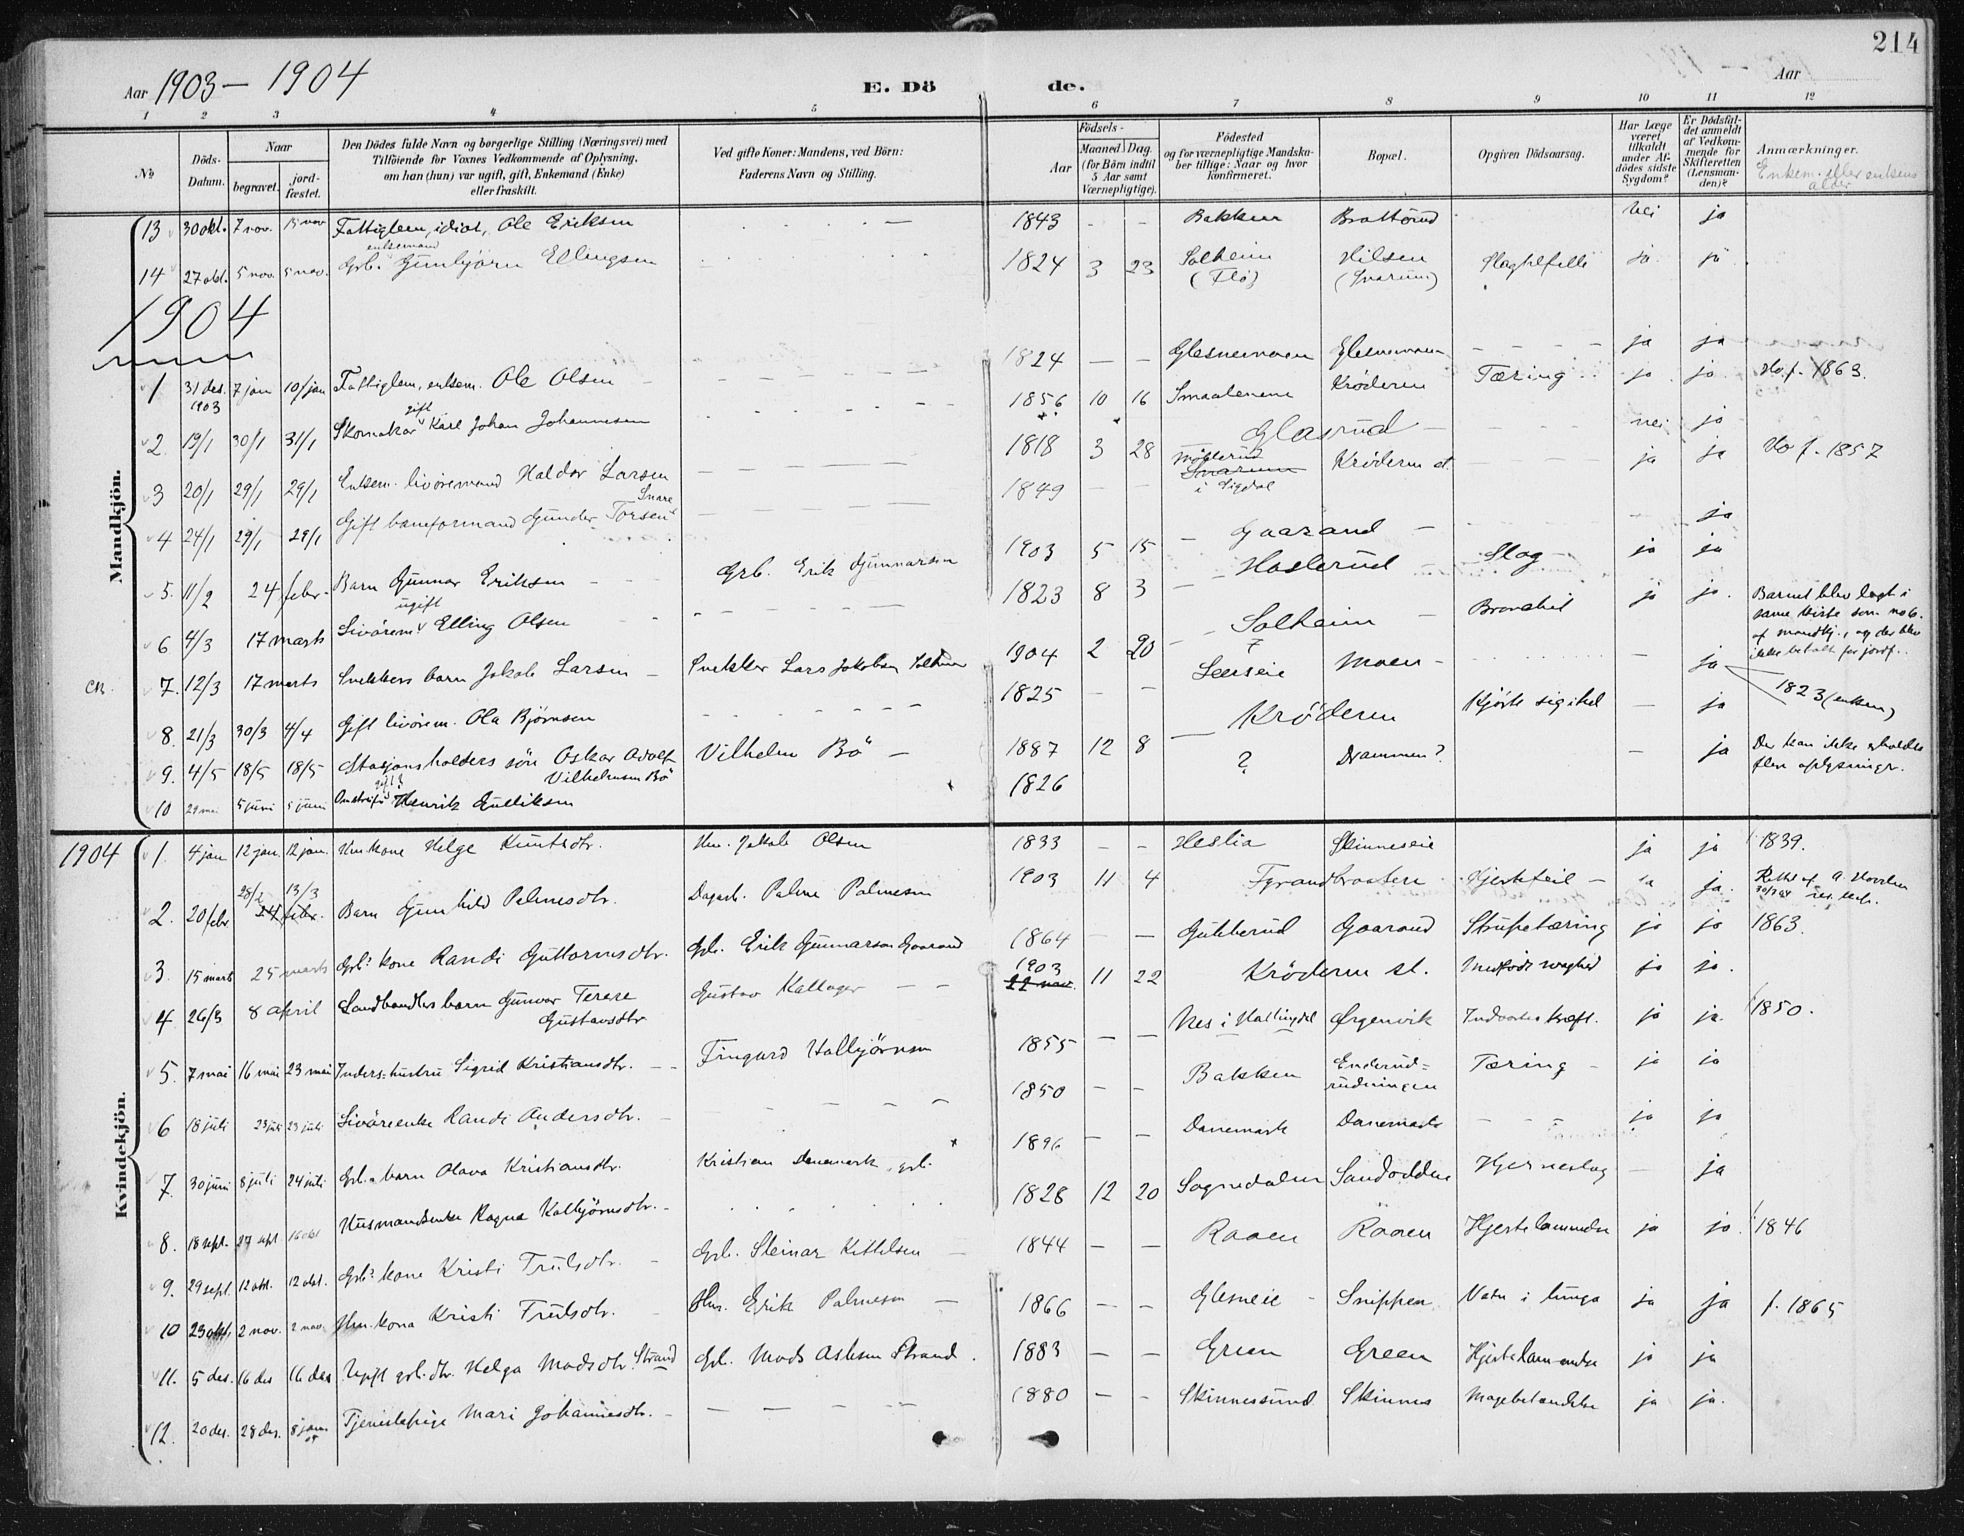 214
Aar 1903 – 1904
E. Dö de.
Aar
1 2 3 4 5 6 7 8 9 10 11 12
№
Döds-Datum.
Naar
begravet.
jord-fæstet.
Den Dödes fulde Navn og borgerlige Stilling (Næringsvei) med
Tilföiende for Voxnes Vedkommende af Oplysning,
om han (hun) var ugift, gift, Enkemand (Enke)
eller fraskilt.
Ved gifte Koner: Mandens, ved Börn:
Faderens Navn og Stilling.
Födsels-
Aar
Maaned. Dag.
(for Börn indtil
5 Aar samt
Værnepligtige).
Födested
og for værnepligtige Mandska-
ber tillige: Naar og hvor
konfirmeret.
Bopæl.
Opgiven Dödsaarsag.
Har Læge
været
tilkaldt
under Af-
dödes sidste
Sygdom?
Er Dödsfal-
det anmeldt
af Vedkom-
mende for
Skifteretten
(Lensman-
den)?
Anmærkninger.
Enkem. eller enkens alder
Mandkjön.
13 30 okt. 7 nov. 15 nov Fattiglem, idiot, Ole Eriksen 1843 – – Bakken Brattörud nei ja
14 27 okt. 5 nov. 5 nov. Grb. enkemand Gunbjörn Ellingsen 1824 3 23 Solheim (Flå) Hilsen (Snarum) Slagtilfelle ja ja
1904
1 31 des. 1903 7 jan 10/jan Fattiglem, enkem. Ole Olsen 1824 – – Glesnemoen Glesnemoen ja ja
2 19/1 30/1 31/1 Skomaker gift Karl Johan Johannesen 1856 10 16 Smaalenene Kröderen Tæring ja ja Ho f. 1863.
3 20/1 29/1 29/1 Enkem. livöremand Haldor Larsen 1818 3 28 Glasrud nei ja
4 24/1 29/1 29/1 Gift baneformand Gunder Torsen Snare 1849 – – Snarum i Sigdal Kröderen st. ja ja Ho f. 1857
5. 11/2 24 febr. Barn Gunnar Eriksen Grb. Erik Gunnarsen 1903 5 15 Gaarand ja
6 4/3 17 marts Livörem. ugift Elling Olsen 1823 8 3 Haslerud Slag ja ja
7. 12/3 17 marts Snekkers barn Jakob Larsen Snekker Lars Jakobsen Solheim 1904 2 20 Solheim ja ja. Barnet blev lagt i
same kiste som no 6.
af mandkj., og der blev
ikke betalt for jordf.
8. 21/3 30/3 4/4 Gift livörem. Ola Björnsen 1825 – – Moen – ja 1823 (enken)
9. 4/5 18/5 18/5 Stasjonsholders sön Oskar Adolf Vilhelmsen Bö Vilhelm Bö 1887 12 8 Kröderen Skjöte sig ihel – ja
10 29 mai 5 juni 5 juni gift? Henrik Gulliksen 1826 ? Drammen? – ja Der kan ikke erholdes
flere oplysninger.
Kvindekjön.
1904
1. 4 jan 12 jan. 12 jan. Hm.kone Helge Knutsdtr. Hm. Jakob Olsen 1833 – – Heslia Skinneseie ja ja 1839.
2. 20 febr 28/2 24 febr. 13/3 Barn Gunhild Palmesdtr. Dagarb. Palme Palmesen 1903 11 4 Fyrandbraaten Hjertefeil – ja ja.
3. 15 marts 25 marts Grb. kone Randi Guttormsdtr. Grb. Erik Gunnarsen Gaarand 1864 – – Gubberud Gaarand Strupetæring ja ja 1863.
4 26/3 8 april Landhandlers barn Gunvor Terese Gustavsdtr Gustav Kallager 1903 22 nov. 11 22 Kröderen st. Medfödt svaghed ja ja.
5. 7 mai 16 mai 23 mai Inders.hustru Sigrid Kristiansdtr. Fingard Halbjörnsen 1855 – – Nes i Hallingdal Ørgenvik Indvortes kræft. ja ja 1850.
6 18 juli 23 juli 23 juli Livöreenke Randi Andersdtr. 1850 – – Bakken Enderud=
rudningen Tæring – ja ja
7. 30 juni 8 juli 24 juli Grb. barn Olava Kristiansdtr. Kristian Danemark, grb. 1896 – – Danemark Danemark ja ja
8. 18 sept. 27 sept 16 okt Husmandsenke Ragna Kolbjörnsdtr. 1828 12 20 Sognedalen Sandodden Hjerneslag – ja
9. 29 sept. 12 okt. 12 okt. Grb. kone Kristi Trulsdtr. Grb. Steinar Kittelsen 1844 – – Raaen Raaen Hjertelammelse ja ja 1846
10 23 okt. 2 nov. 2 nov. Hm.kona Kristi Trulsdtr. Hm. Erik Palmesen 1866 – – Glesneie Snippen Vatn i lunga ja ja f. 1865
11. 5 des. 16 des 16 des Ugift grb. dtr. Helga Madsdtr. Strand Grb. Mads Aslesen Strand. 1883 – – Green Green Hjertelammelse ja ja
12. 20 des. 28 des. 8 jan. 05 Tjenestepige Mari Johannesdtr. 1880 – – Skinnessund Skinnes Magebetændelse ja ja.